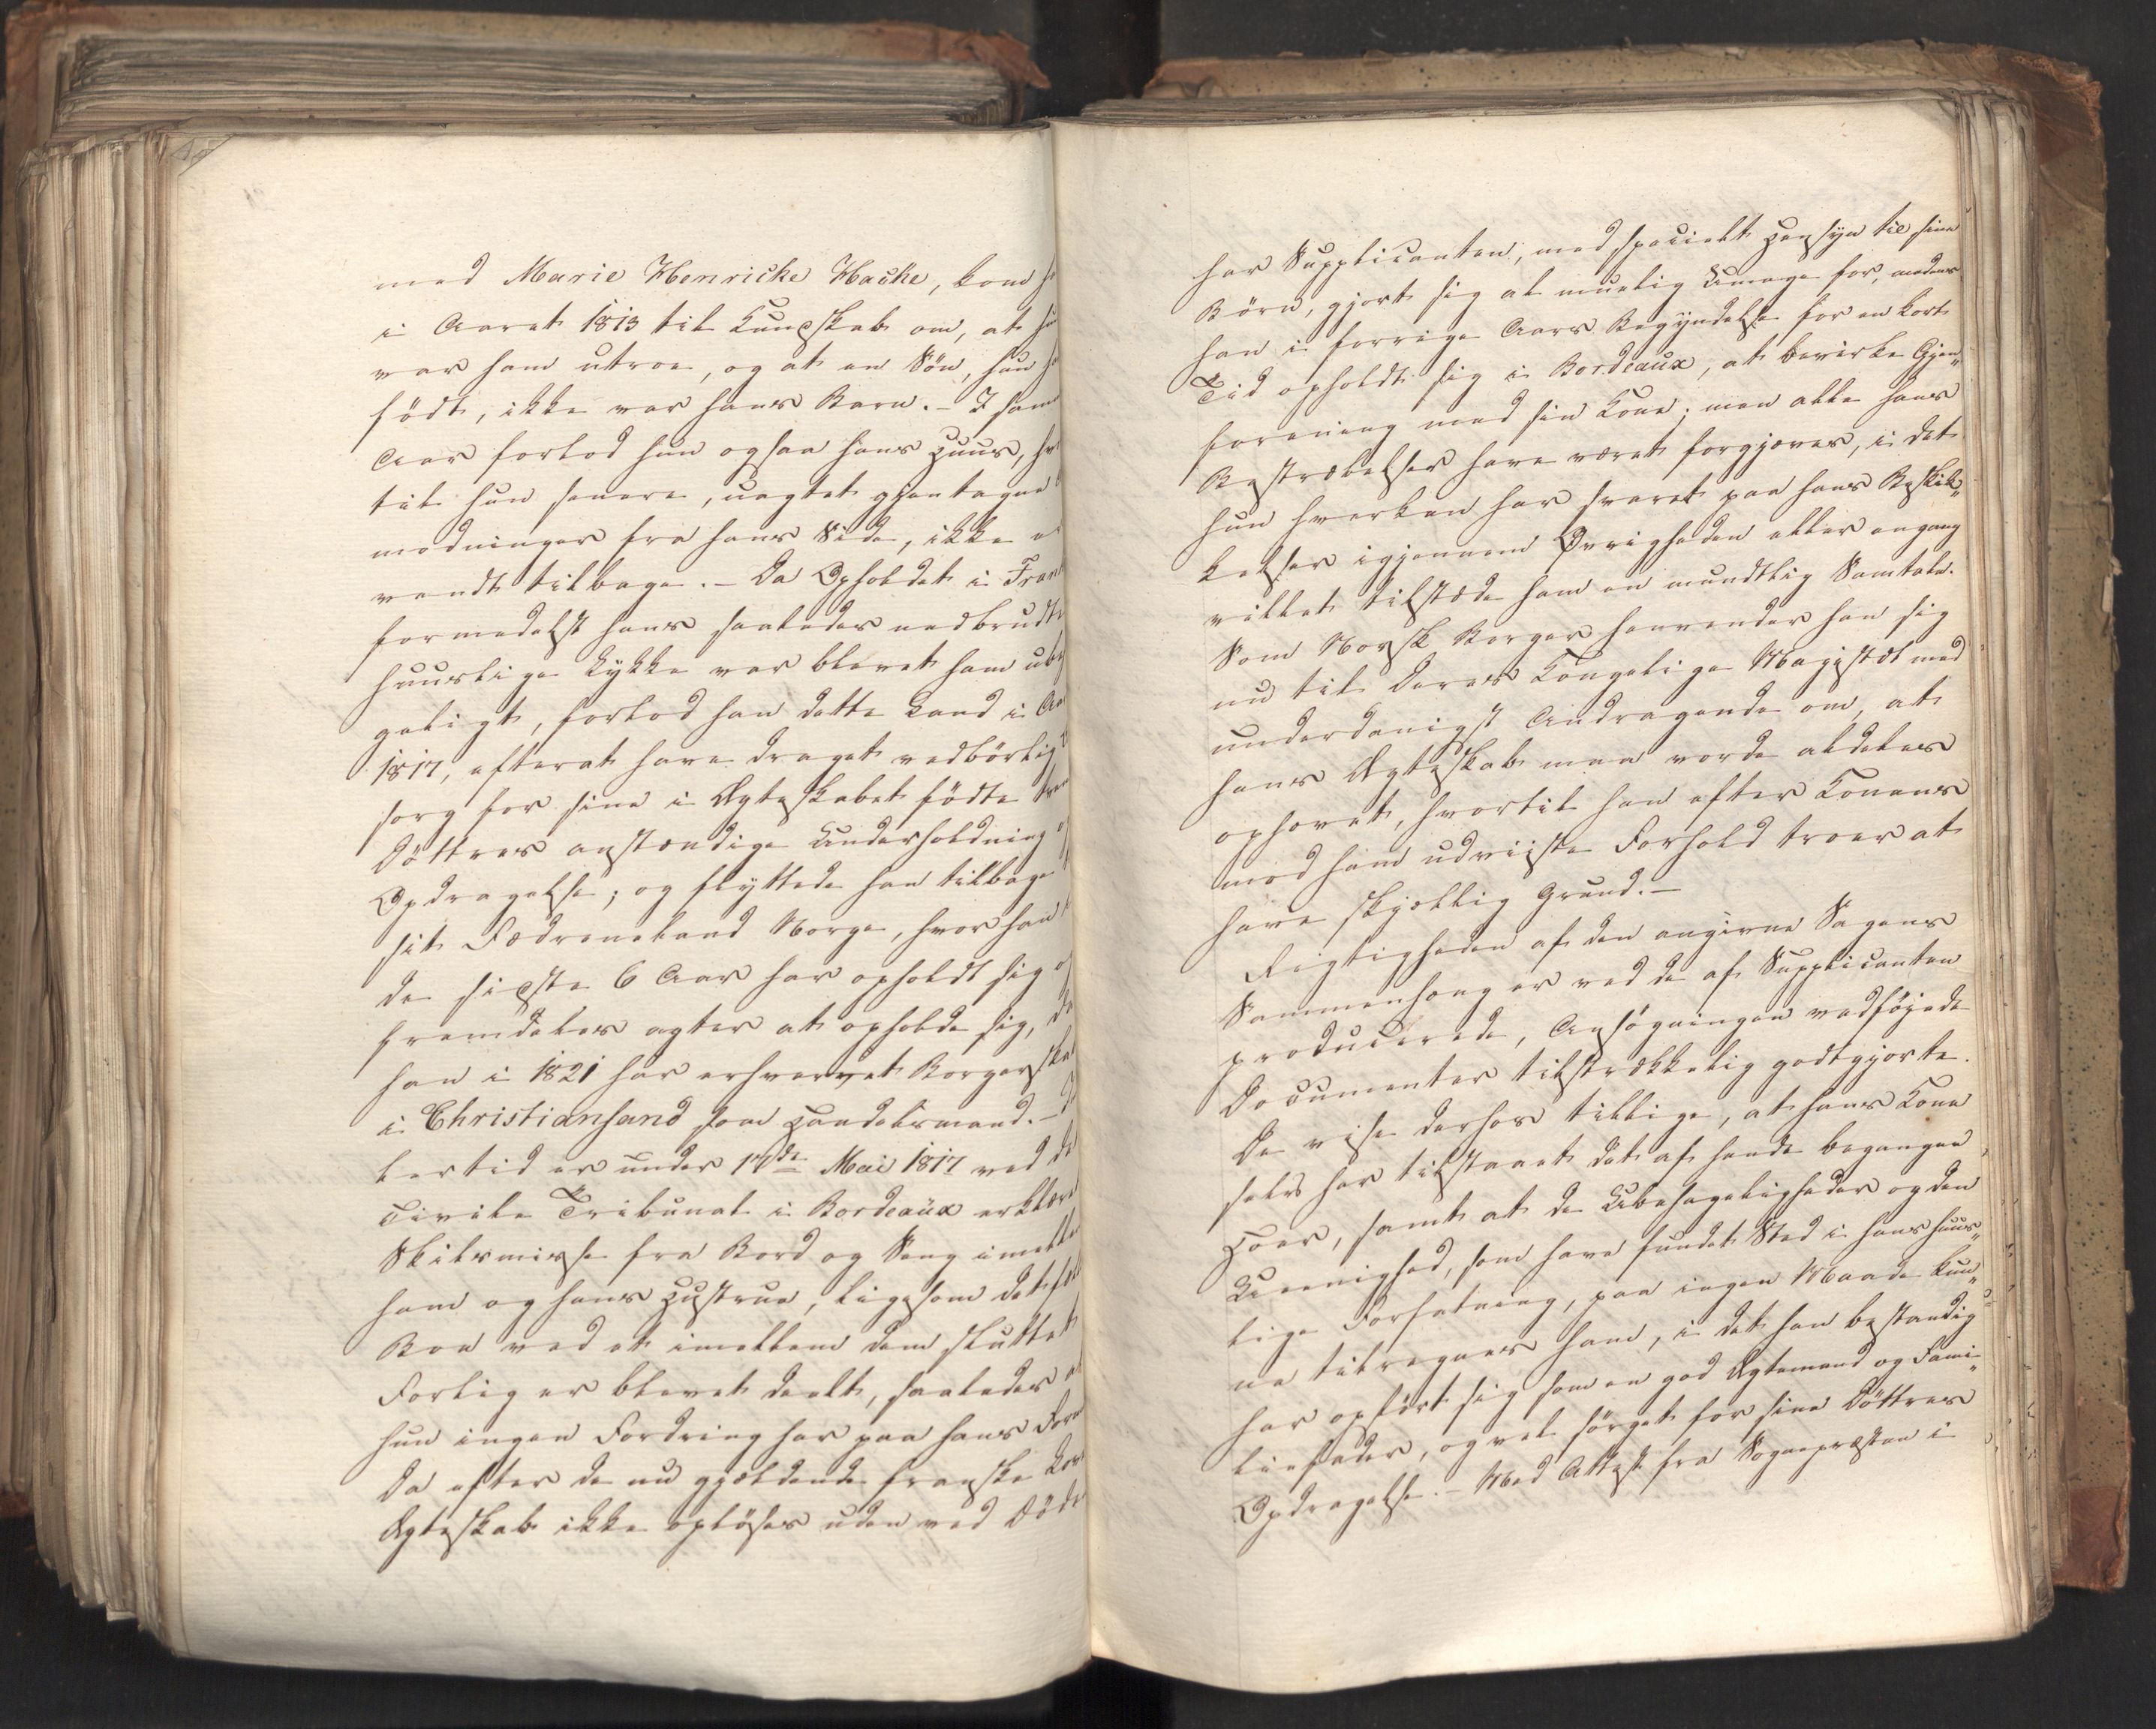 med Marie Henricke Hacke, kom
i Aaret 1813 til Kundskab om, at
var ham utroe, og at en Sön, hun
födt, ikke var hans Barn. – I sam
Aar forlod hun ogsaa hans Huus,
til hun senere, uagtet gjentagne
modninger fra hans Side, ikke
vendt tilbage. – Da Opholdet i Frank
formedelst hans saaledes nedbrudte
huuslige Lykke var blevet ham ube
geligt, forlod han dette Land i Aa
1817, efterat have draget vedbörlig
sorg for sine i Ægteskabet födte
Döttres anstændige Underholdning
Opdragelse; og flyttede han tilbage
sit Fædreneland Norge, hvor han
de sidste 6 Aar har opholdt sig
fremdeles agter at opholde sig,
han i 1821 har erhvervet Borgerskab
i Christiansand som Handelsmand. –
lertid er under 17de Mai 1817 ved
Civile Tribunal i Bordeaux erklæret
Skilsmisse fra Bord og Seng imelle
ham og hans Hustrue, ligesom det
Boe ved et imellem dem sluttet
Forlig er blevet deelt, saaledes
hun ingen Fordring har paa hans
Da efter de nu gjældende franske
Ægteskab ikke oplöses uden ved Död
har Supplicanten, med specielt Hensyn til sine
Börn, gjort sig al muelig Umage for, medens
han i forrige Aars Begyndelse for en kort
Tid opholdt sig i Bordeaux, at bevirke Gjen„
forening med sin Kone; men alle hans
Bestræbelser have været forgjæves, i det
hun hverken har svaret paa hans Beskik„
kelser igjennem Øvrigheden eller engang
villet tilstæde ham en mundtlig Samtale.
Som Norsk Borger henvender han sig
nu til Deres Kongelige Majestæt med
underdanigst Andragende om, at
hans Ægteskab maa vorde aldeles
ophævet, hvortil han efter Konens
mod ham udviiste Forhold troer at
have skjellig Grund. –
Rigtigheden af den angivne Sagens
Sammenhæng er ved de af Supplicanten
producerede, Ansögningen vedföiede
Documenter tilstrækkelig godtgjorte.
De vise derhos tillige, at hans Kone
selv har tilstaaet det af hende begangne
Hoer, samt at de Ubehageligheder og den
Ueenighed, som have fundet Sted i hans huus„
lige Forfatning, paa ingen Maade kun„
ne tilregnes ham, i det han bestandig
har opfört sig som en god Ægtemand og Fami„
liefader, og vel sörget for sine Döttres
Opdragelse. – Med Attest fra Sognepræsten i